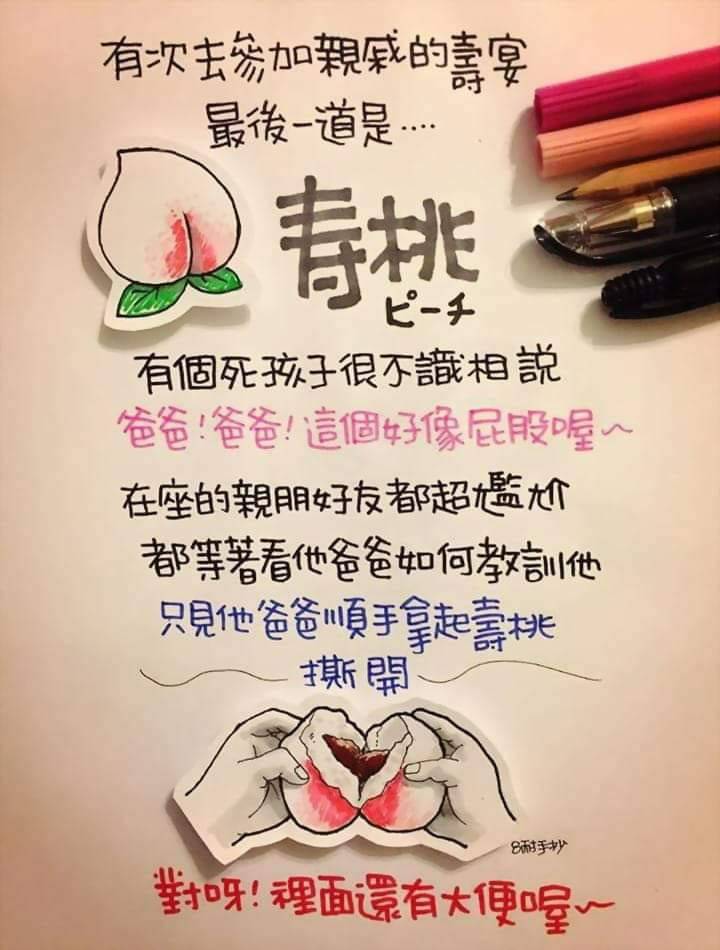 有次去參加親戚的壽宴
最後一道是....
寿桃
ピーチ
有個死孩子很不識相說
爸爸!爸爸!這個好像屁股喔~
在座的親朋好友都超尷尬
都等著看他爸爸如何教訓他
只見他爸爸順手拿起壽桃
撕開
8耐手抄
對呀!裡面還有大便喔~